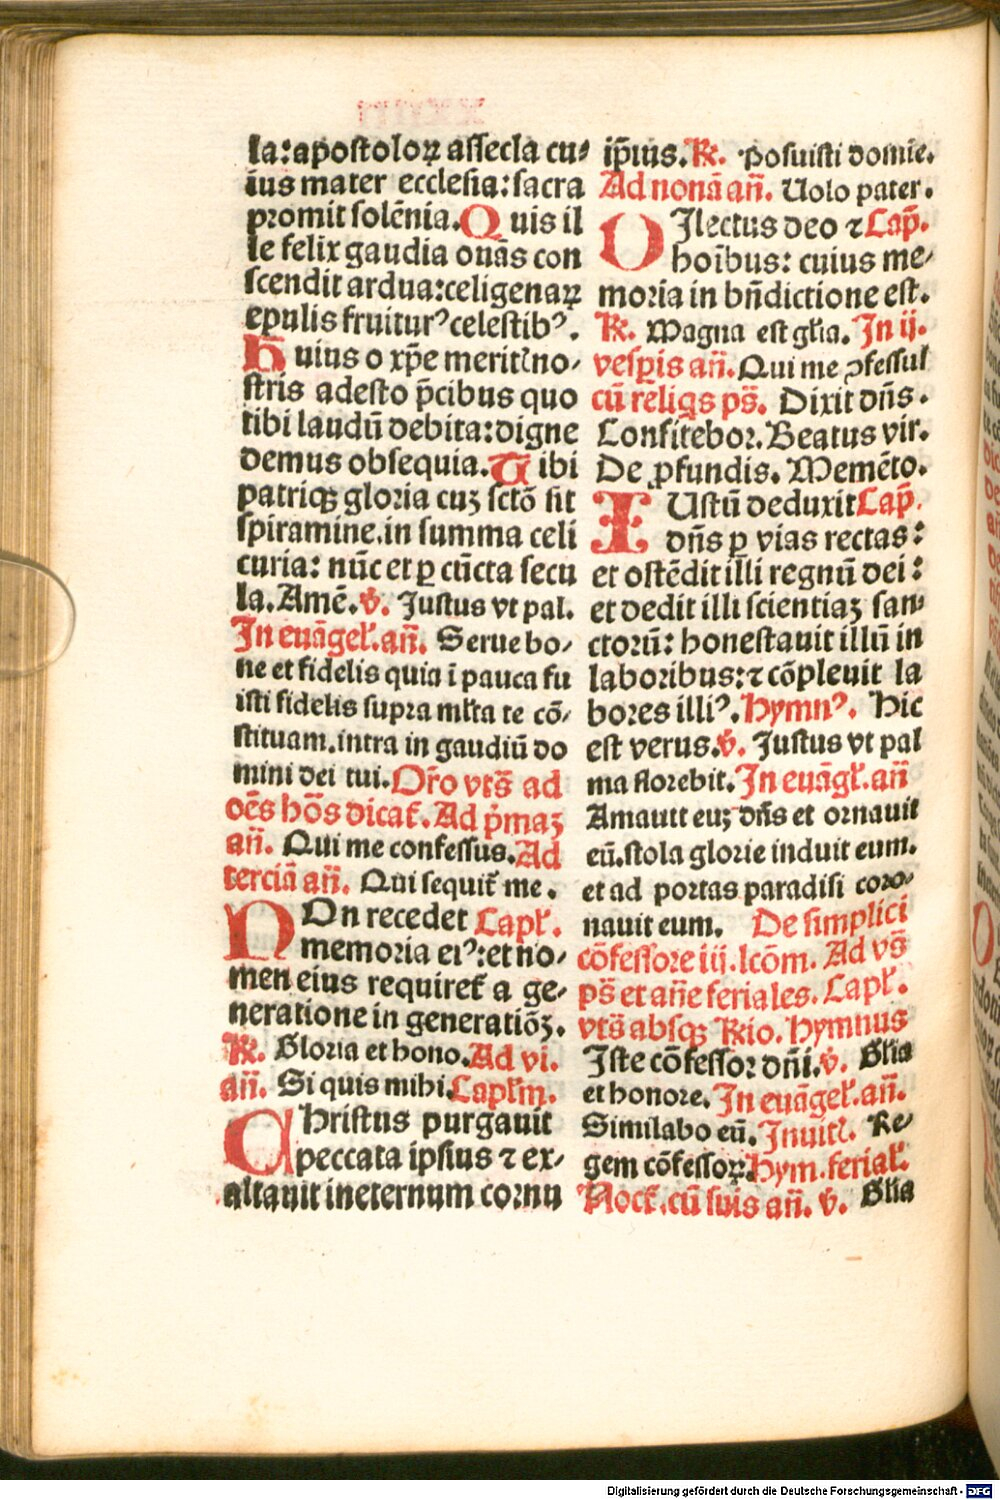 la: apostoloꝝ assecla cu⸗
ius mater ecclesia: sacra
promit solēnia. Quis il
le felix gaudia ouās con
scendit ardua: celigenaꝝ
epulis fruitur⁹ celestib⁹.
Huius o xp̄e meritꝭ no⸗
stris adesto p̄cibus quo
tibi laudū debita: digne
demus obsequia. Tibi
patriqꝫ gloria cuꝫ sctō sit
spiramine. in summa celi
curia: nūc et ꝑ cūcta secu
la. Amē. v̄. Justus vt pal.
In euāgel̕. an̄. Serue bo⸗
ne et fidelis quia ī pauca fu
isti fidelis supra ml̕ta te cō⸗
stituam. intra in gaudiū do
mini dei tui. Or̄o vts̄ ad
oēs hōs dicat̕. Ad p̄maꝫ
an̄. Qui me confessus. Ad
terciā an̄. Qui sequit̕ me.
NOn recedet Capl̕.
memoria ei⁹: et no⸗
men eius requiret̕ a ge⸗
neratione in generatiōꝫ.
℞. Gloria et hono. Ad vi.
an̄. Si quis mihi. Capl̕m.
CHristus purgauit
peccata ipsius ⁊ ex⸗
altauit ineternum cornu
ip̄ius. ℞. Posuisti domīe.
Ad nonā an̄. Uolo pater.
DIlectus deo ⁊ Cap̄.
hoībus: cuius me⸗
moria in bn̄dictione est.
℞. Magna est gl̕ia. In ij.
vesꝑis an̄. Qui me ꝯfessus
cū religꝭ ps̄. Dixit dn̄s.
Confitebor. Beatus vir.
De ꝓfundis. Memēto.
IUstū deduxit Cap̄.
dn̄s ꝑ vias rectas:
et ostēdit illi regnū dei:
et dedit illi scientiaꝫ san⸗
ctorū: honestauit illū in
laboribus: ⁊ cōpleuit la
bores illi⁹. Hymn⁹. Hic
est verus. v̄. Justus vt pal
ma florebit. In euāgl̕. an̄
Amauit euꝫ dn̄s et ornauit
eū. stola glorie induit eum.
et ad portas paradisi coro⸗
nauit eum. De simplici
cōfessore iij. lcōm. Ad vs̄
ps̄ et an̄e feriales. Capl̕.
vts̄ absqꝫ ℞io. Hymnus
Iste cōfessor dn̄i. v̄. Gl̕ia
et honore. In euāgel̕. an̄.
Similabo eū. Inuitꝭ. Re⸗
gem cōfessoꝝ. Hym. ferial̕.
Noct̕. cū suis an̄. v̄. Gl̕ia
Digitalisierung gefördert durch die Deutsche Forschungsgemeinschaft - DFG